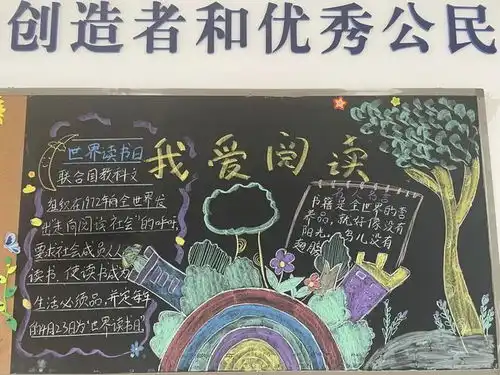 创造者和优秀公民
我爱阅读
世界读书日
联合国教科文
组织在1972年向全世界发
出"走向阅读社会"的呼吁,
要求社会成员人人
读书,使读书成为
生活必须品,并定每年
的4月23月为"世界读书日。
书籍是全世界的营
养品,就好像没有
阳光,鸟儿没有
翅膀